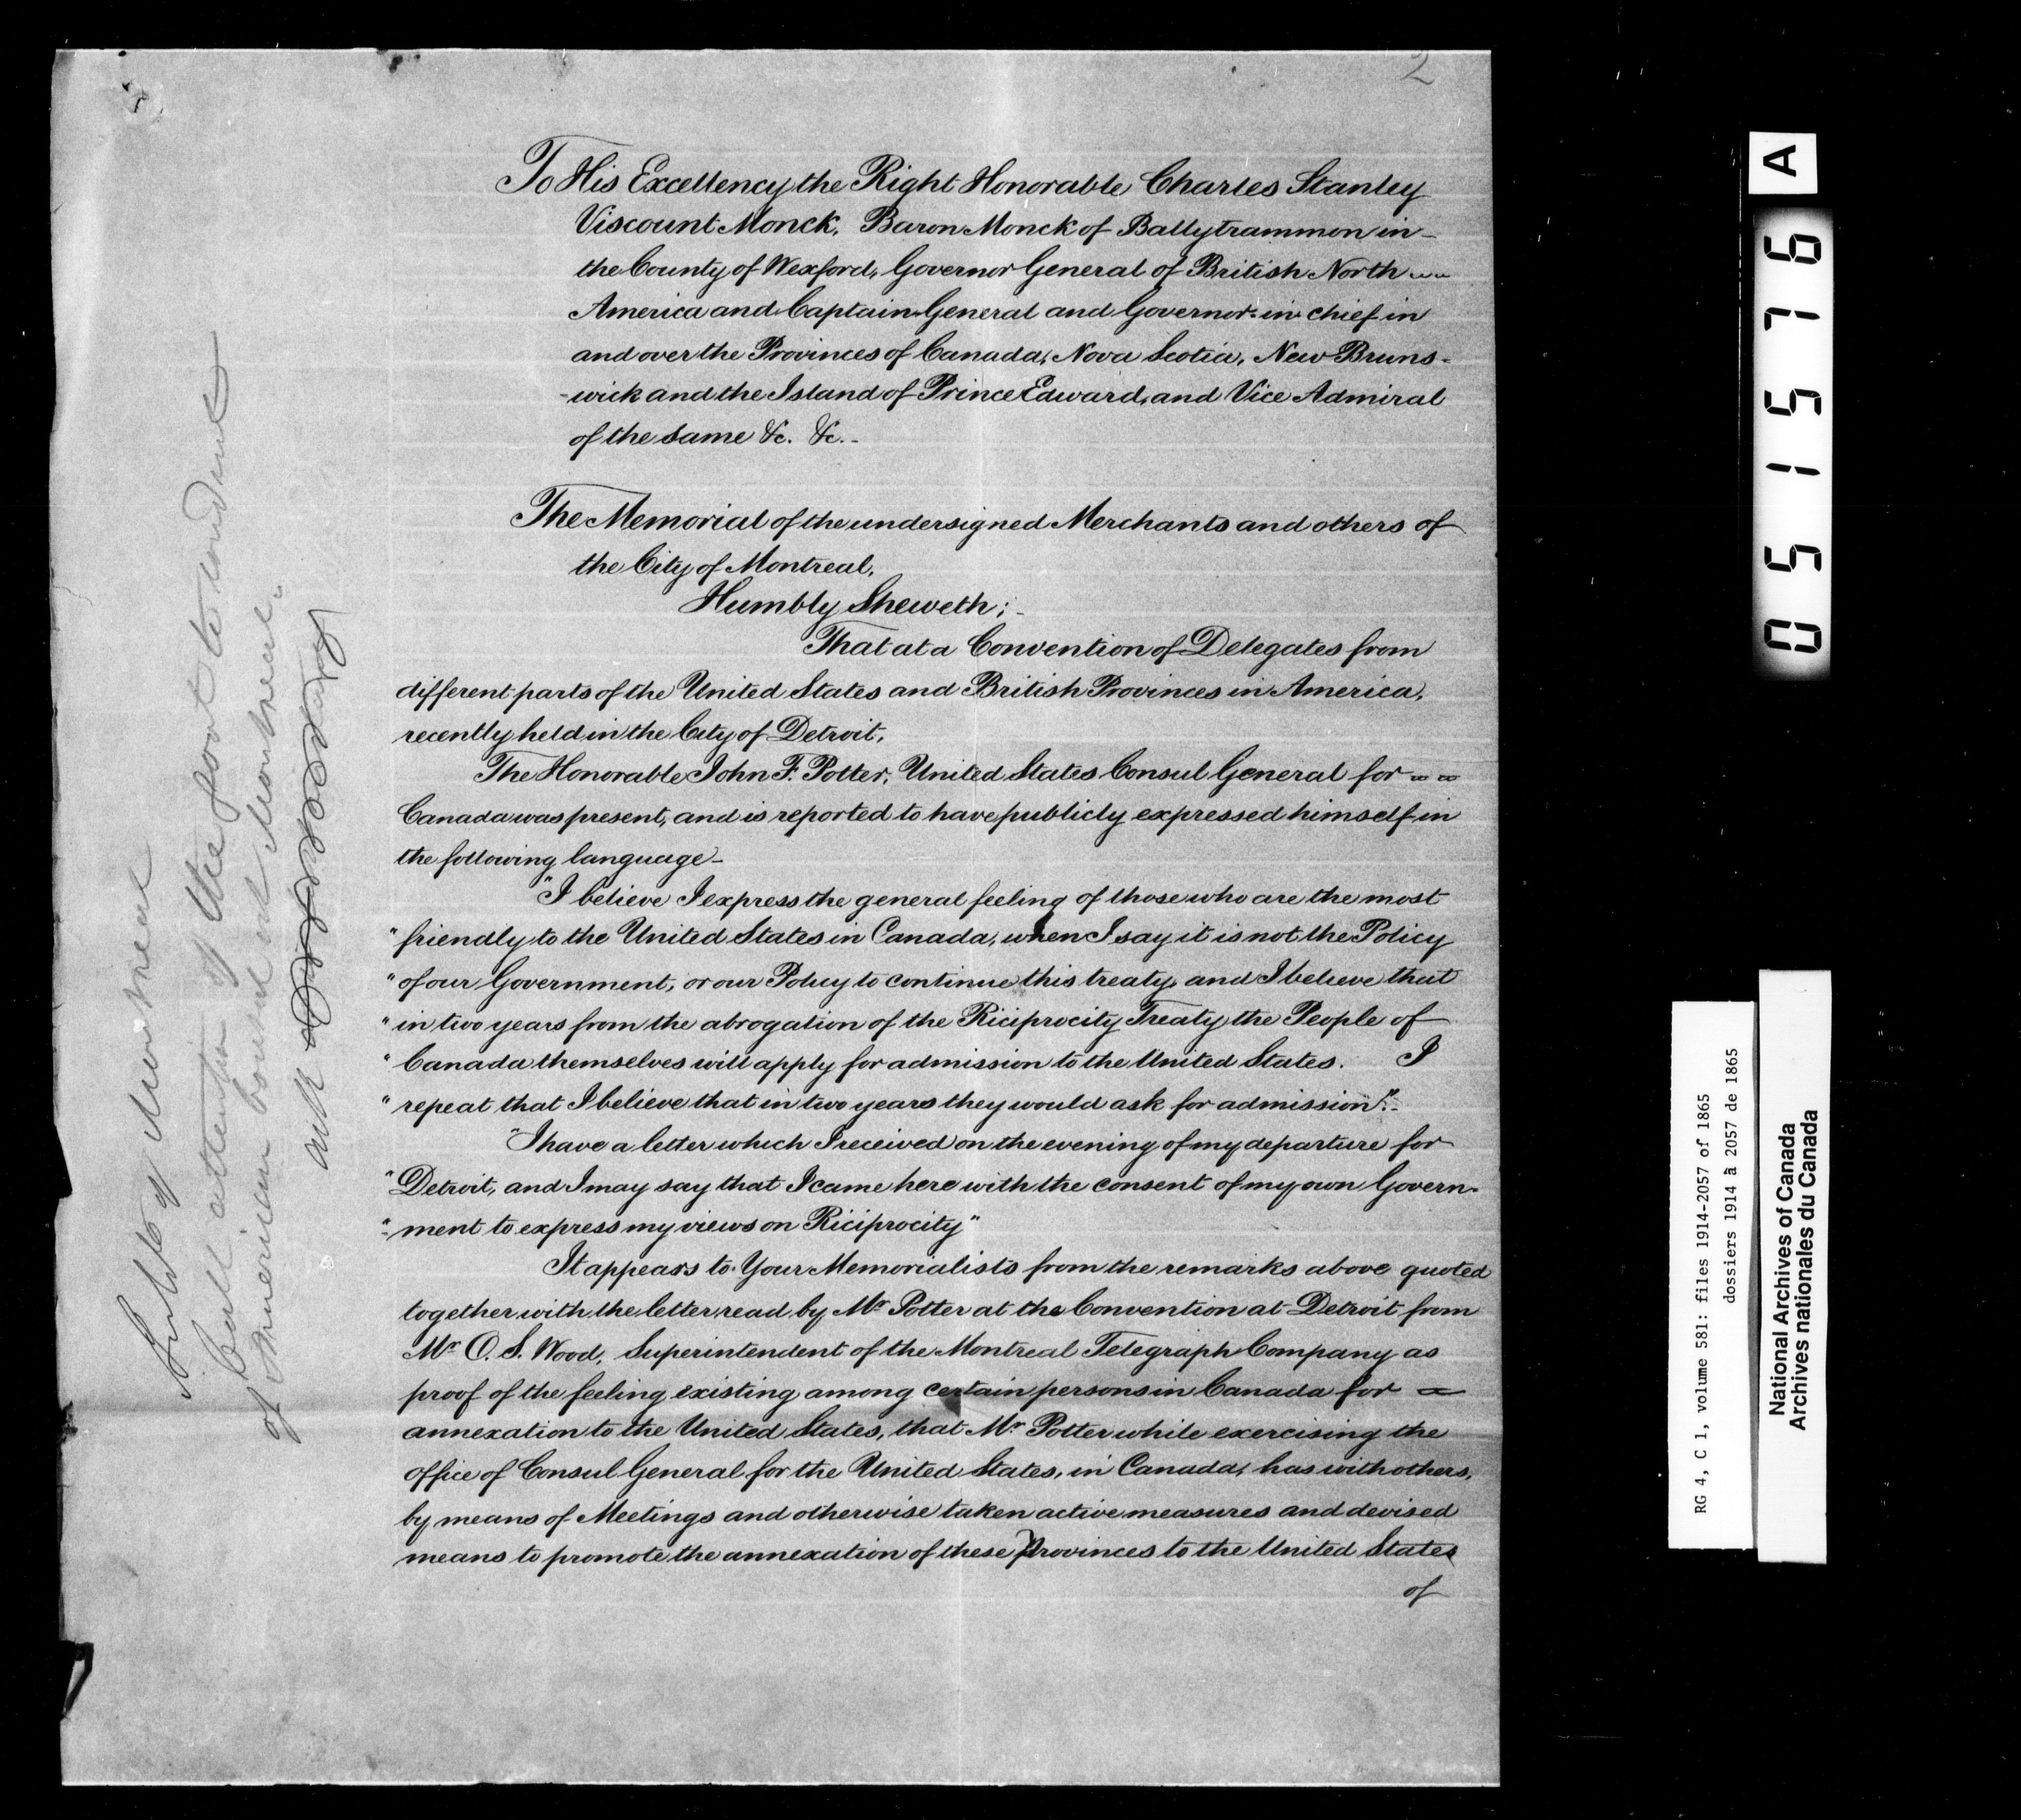 2
To His Excellency the Right Honorable Charles Stanley
Viscount Monck, Baron Monck of Ballytrammon in
the County of Wexford, Governor General of British North
America and Captain General and Governor in chief in
and over the Provinces of Canada, Nova Scotia, New Bruns-
-wick and the Island of Prince Edward, and Vice Admiral
of the same &c. &c.-
The Memorial of the undersigned Merchants and others of
the City of Montreal,
Humbly Sheweth;-
That at a Convention of Delegates from
different parts of the United States and British Provinces in America,
recently held in the City of Detroit,
The Honorable John F. Potter, United States Consul General for
Canada was present, and is reported to have publicly expressed himself in
the following language-
"I believe I express the general feeling of those who are the most
"friendly to the United States in Canada, when I say it is not the Policy
"of our Government, or our Policy to continue this treaty, and I believe that
"in two years from the abrogation of the Riciprocity Treaty the People of
"Canada themselves will apply for admission to the United States. I
"repeat that I believe that in two years they would ask for admission".-
"I have a letter which I received on the evening of my departure for
"Detroit, and I may say that I came here with the consent of my own Govern-
"-ment to express my views on Riciprocity"
It appears to Your Memorialists from the remarks above quoted
together with the letter read by Mr Potter at the Convention at Detroit from
Mr O. S. Wood, Superintendent of the Montreal Telegraph Company as
proof of the feeling existing among certain persons in Canada for
annexation to the United States, that Mr Potter while exercising the
office of Consul General for the United States, in Canada, has with others,
by means of Meetings and otherwise taken active measures and devised
means to promote the annexation of these Provinces to the United States
of
of Montreal
Call attention of the Govt to conduct
of American Consul at Montreal.
A
051576
RG 4, C 1, volume 581: files 1914-2057 of 1865
dossiers 1914 à 2057 de 1865
National Archives of Canada
Archives nationales du Canada